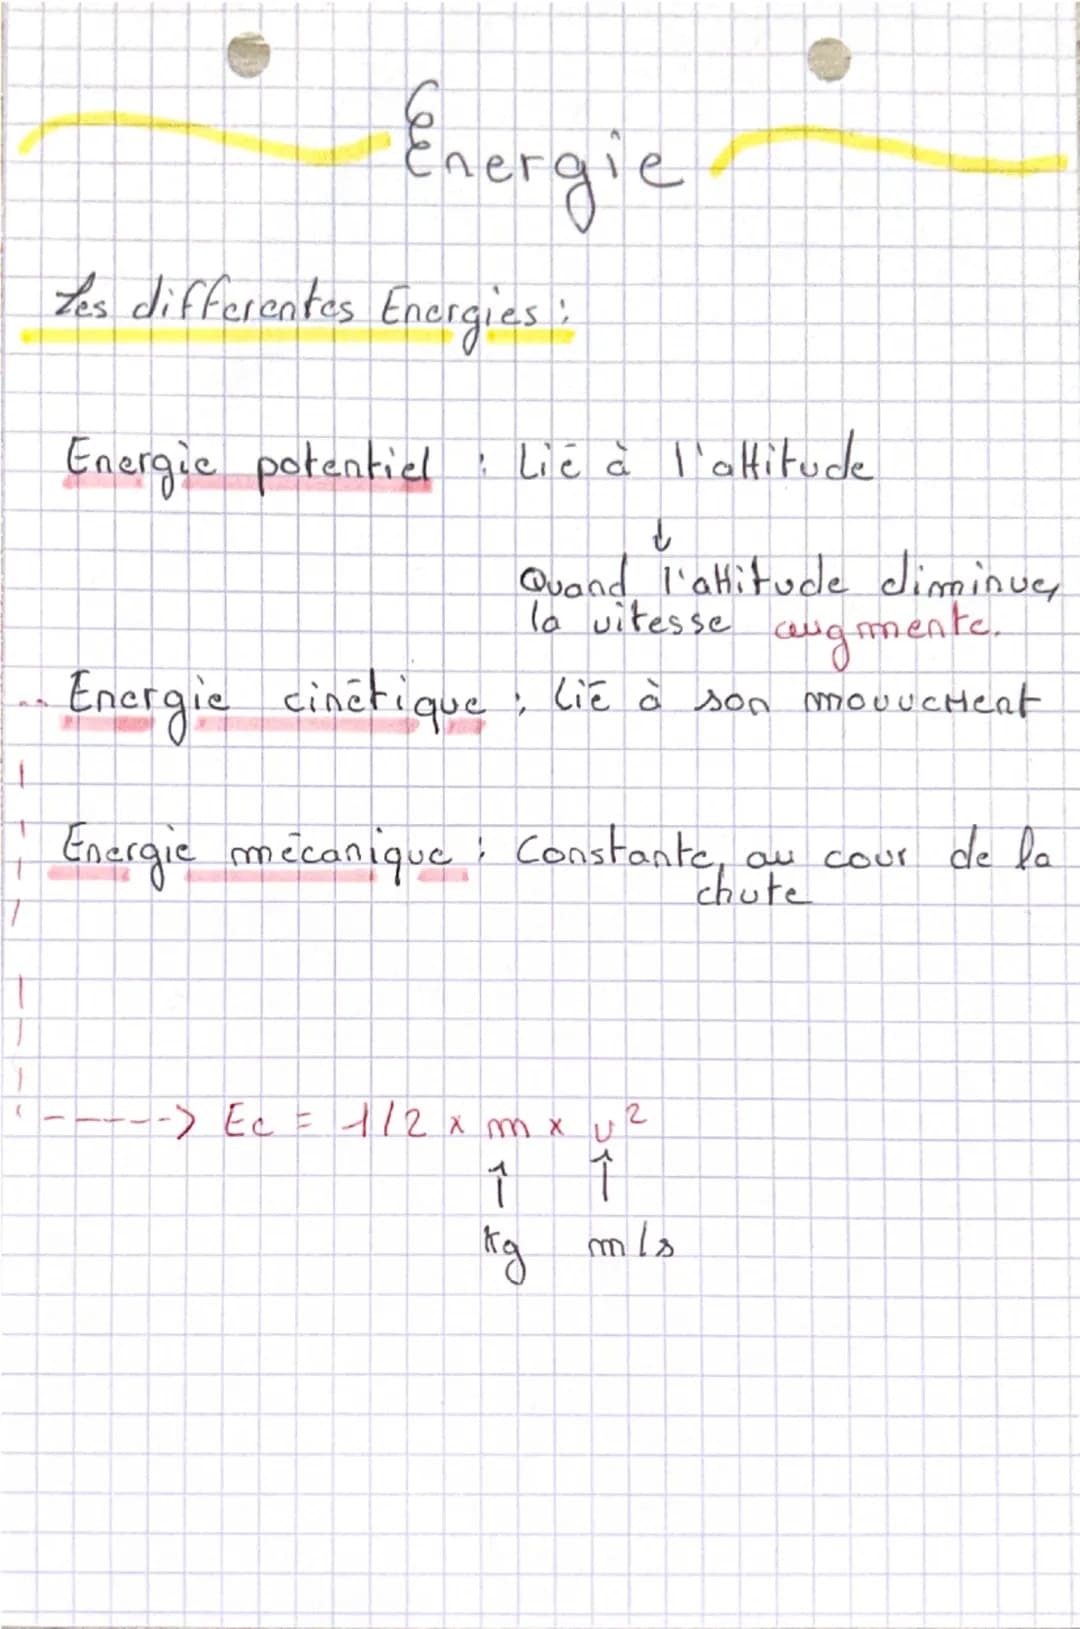 Energie
Les differentes Energies :
Energie potentiel : Lié à l'attitude
↓
Quand l'attitude diminue,
la vitesse augmente.
Energie cinétique : Lié à son mouvement
Energie mécanique : Constante, au cour de la
chute
-----> Ec = 1/2 x m x v²
↑ ↑
kg m/s